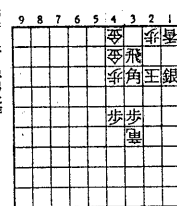 9 8 7 6 5 4 3 2 1
金 歩 香
金 飛
歩 角 王 銀
歩 歩
竜